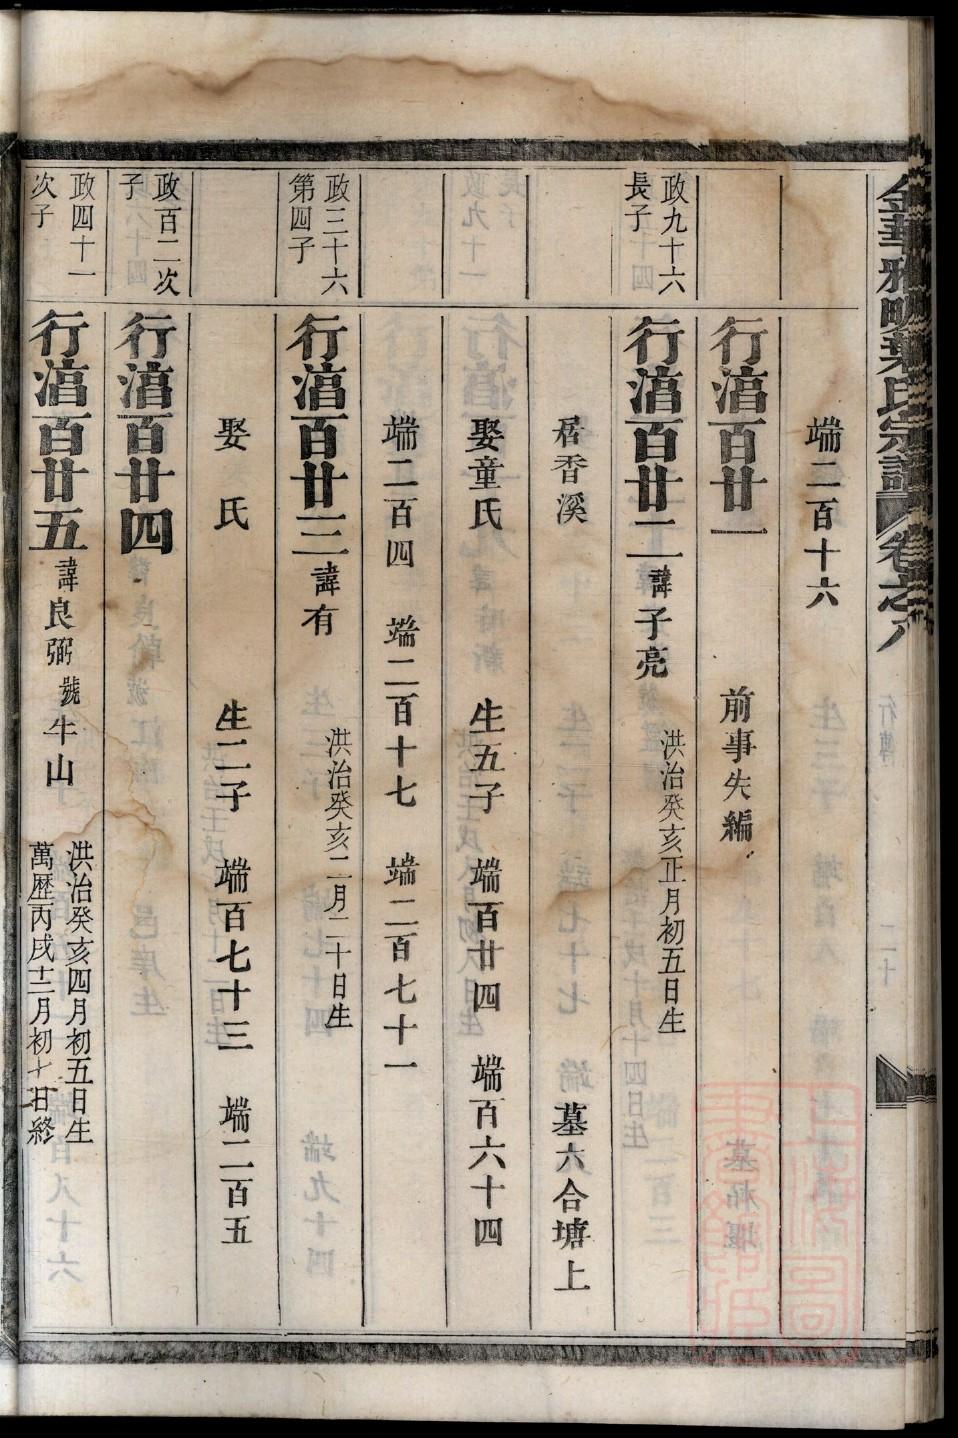 端二百十六
行湻百廿一 前事失編
政九十六長子
行湻百廿二 諱子亮 洪治癸亥正月初五日生
居香溪 墓六合塘上
娶童氏 生五子 端百廿四 端百六十四
端二百四 端二百十七 端二百七十一
政三十六第四子
行湻百廿三 諱有 洪治癸亥二月二十日生
娶 氏 生二子 端百七十三 端二百五
政百二次子
行湻百廿四
政四十一次子
行湻百廿五 諱良弼 號牛山 洪治癸亥四月初五日生
萬歷丙戌十二月初十日終